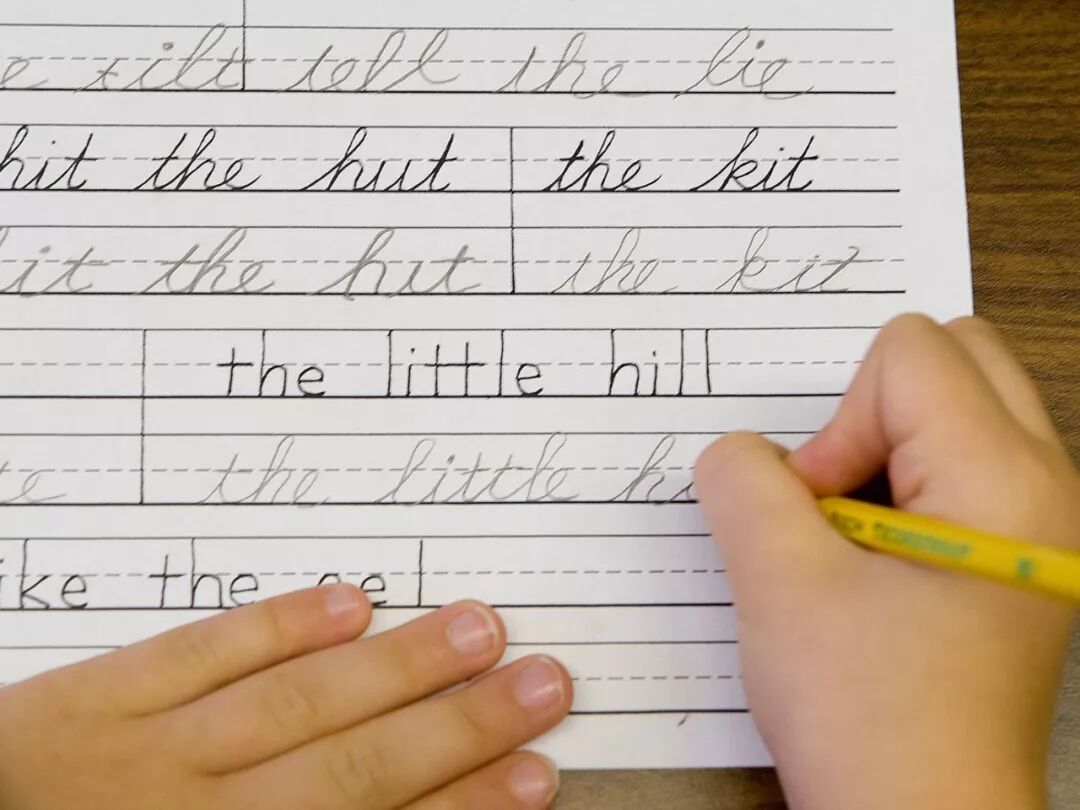 tell the lie
hit the hut the kit
hit the hut the kit
the little hill
the little hi
like the eel